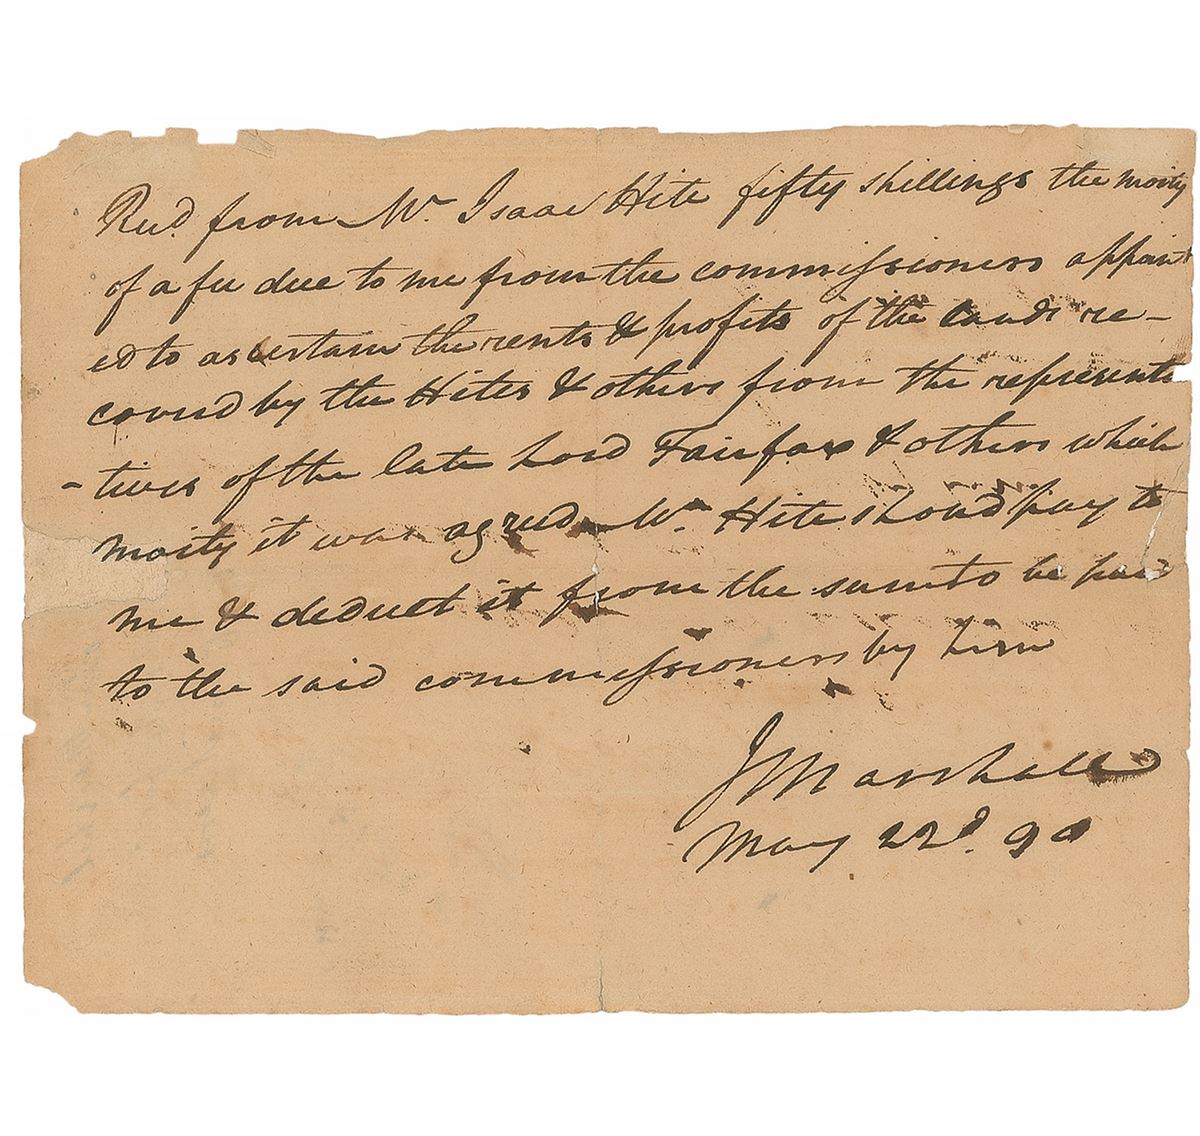 Recd. from Mr Isaac Hite fifty shillings the moity
of a fee due to me from the commissioners appoint
ed to ascertain the rents & profits of the lands re-
coverd by the Hites & others from the representa
-tives of the late Lord Fairfax & others which
moity it was agreed Mr Hite should pay to
me & deduct it from the sum to be paid
to the said commissioners by him
J Marshall
May 22d. 90